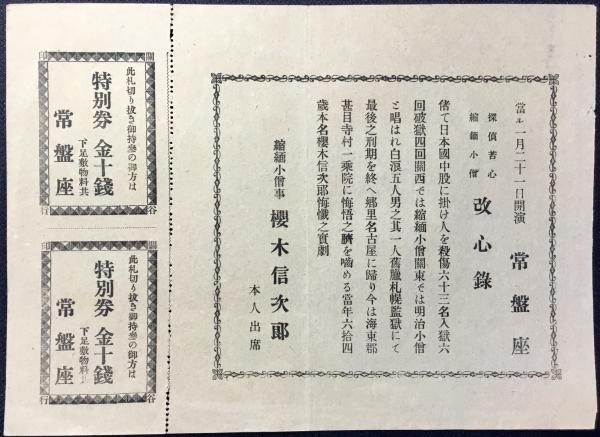 當ル一月二十一日開演
常盤座
探偵苦心
縮緬小僧
改心錄
偖て日本國中股に掛け人を殺傷六十三名入獄六
回破獄四回關西では縮緬小僧關東では明治小僧
と唱はれ白浪五人男之其一人舊臘札幌監獄にて
最後之刑期を終へ郷里名古屋に歸り今は海東郡
甚目寺村一乗院に悔悟之臍を嚙める當年六拾四
歳本名櫻木信次郎悔懺之實劇
縮緬小僧事
櫻木信次郎
本人出席
關
印
谷
行
此札切り拔き御持參の御方は
特別券金十錢
下足敷物料共
常盤座
關
印
谷
行
此札切り拔き御持參の御方は
特別券金十錢
下足敷物料共
常盤座